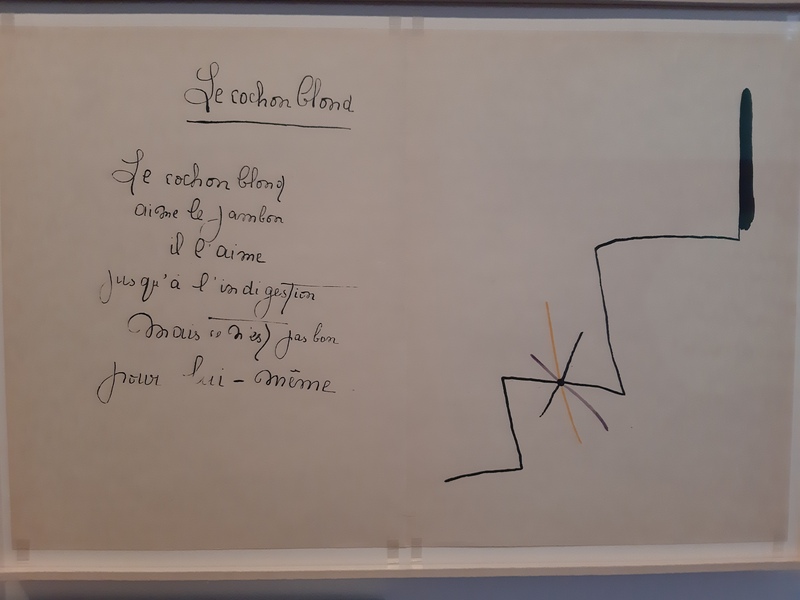 Le cochon blond
Le cochon blond
aime le jambon
il l'aime
jusqu'à l'indigestion
Mais ce n'est pas bon
pour lui-même